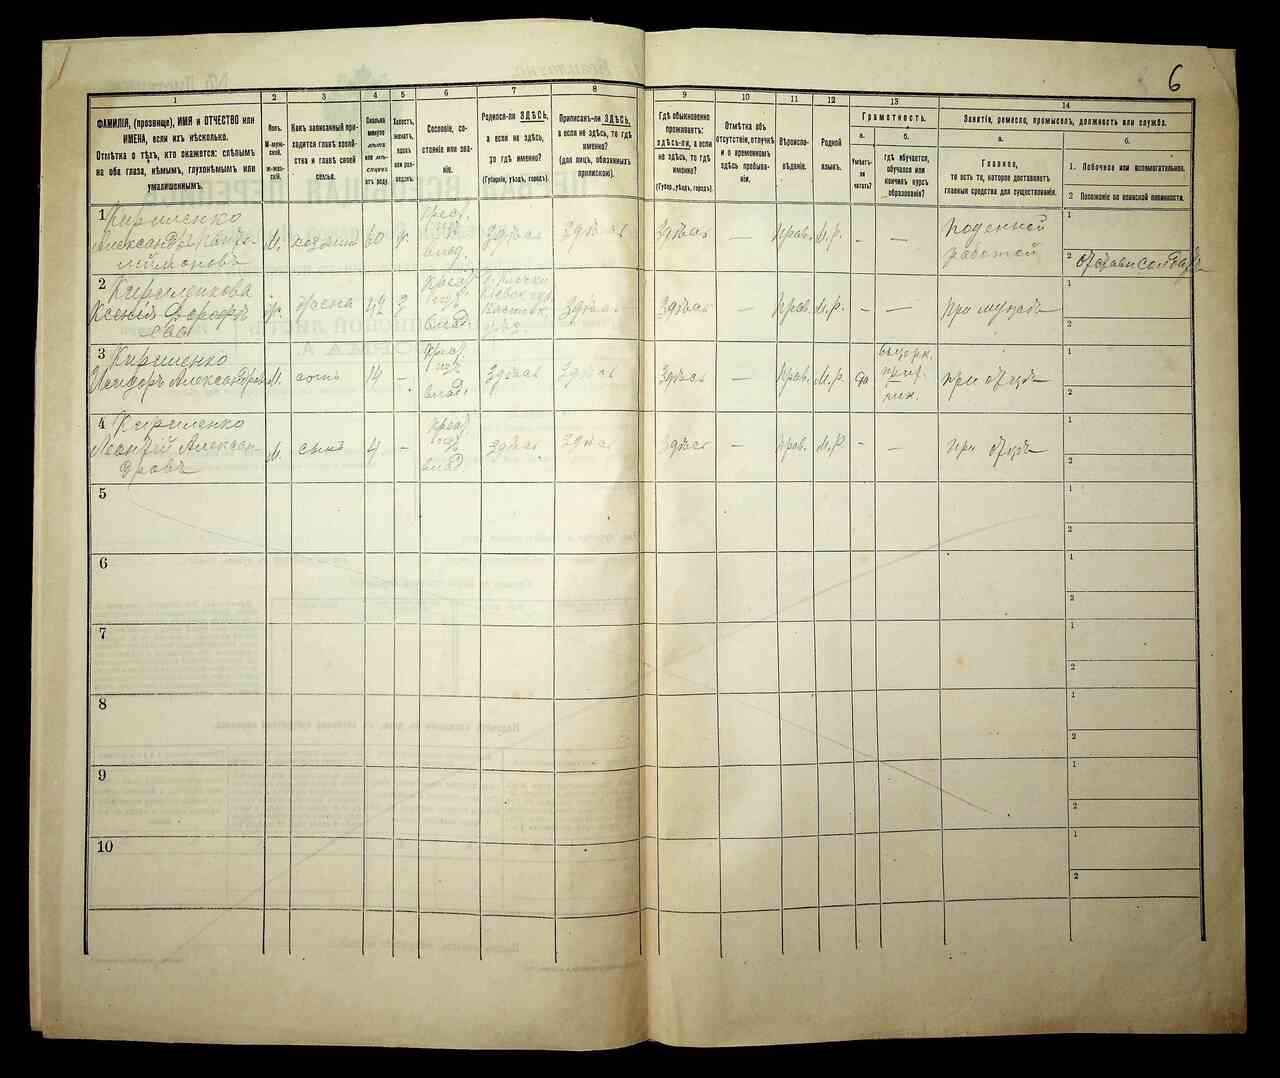 6
1
2
3
4
5
6
7
8
9
10
11
12
13
14
ФАМИЛІЯ, (прозвище), ИМЯ и ОТЧЕСТВО или
ИМЕНА, если ихъ нѣсколько.
Отмѣтка о тѣхъ, кто окажется: слѣпымъ
на оба глаза, нѣмымъ, глухонѣмымъ или
умалишеннымъ.
Полъ.
М-муж-
ской.
ж-жен-
скій.
Какъ записанный при-
ходится главѣ хозяй-
ства и главѣ своей
семьи.
Сколько
минуло
лѣтъ
или мѣ-
сяцевъ
отъ роду.
Холостъ,
женатъ,
вдовъ
или раз-
веденъ.
Сословіе, со-
стояніе или зва-
ніе.
Родился-ли ЗДѢСЬ,
а если не здѣсь,
то гдѣ именно?
(Губернія, уѣздъ, городъ).
Приписанъ-ли ЗДѢСЬ,
а если не здѣсь, то гдѣ
именно?
(для лицъ, обязанныхъ
припиской).
Гдѣ обыкновенно
проживаетъ:
здѣсь-ли, а если
не здѣсь, то гдѣ
именно?
(Губер., уѣздъ, городъ).
Отмѣтка объ
отсутствіи, отлучкѣ
и о временномъ
здѣсь пребыва-
ніи.
Вѣроиспо-
вѣданіе.
Родной
языкъ.
Грамотность.
а.
Умѣетъ-
ли
читать?
б.
Гдѣ обучается,
обучался или
кончилъ курсъ
образованія?
Занятіе, ремесло, промыселъ, должность или служба.
а.
Главное,
то есть то, которое доставляетъ
главныя средства для существованія.
б.
1. Побочное или вспомогательное.
2 Положеніе по воинской повинности.
1 Кириленко
Александръ
М. хозяинъ 60 ж. Крест. влад. здѣсь здѣсь здѣсь — Прав. М.р. — — Поденной работой
1
2 отставн солдатъ
2 Кириленкова
Ксенія
ж. жена 42 3 Крест. влад. здѣсь здѣсь — Прав. М.р. — — При мужѣ
1
2
3 Кириленко
Исидоръ Александров
М. сынъ 14 — Крест. влад. здѣсь здѣсь здѣсь — Прав. М.р. да при отцѣ
1
2
4 Кириленко
Леонтій Алексан-
дровъ
М. сынъ 4 — Крест. влад. здѣсь здѣсь здѣсь — Прав. М.р. — — при отцѣ
1
2
5
1
2
6
1
2
7
1
2
8
1
2
9
1
2
10
1
2